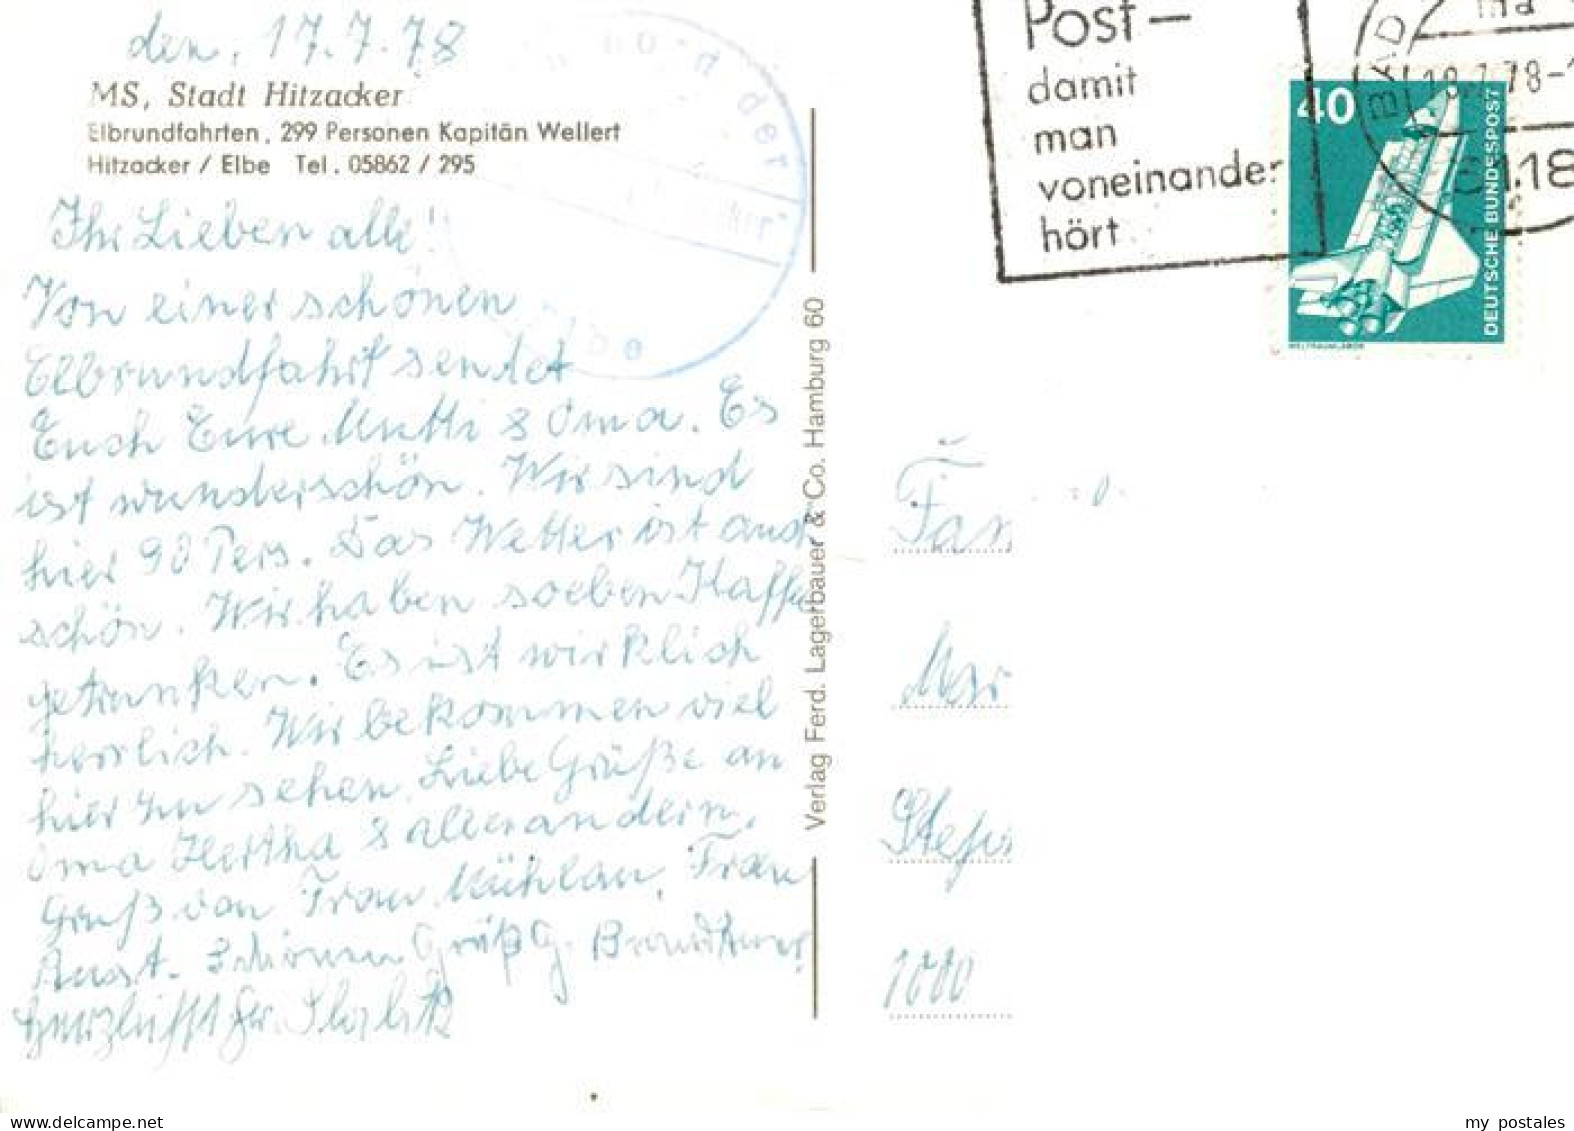 den. 17.7.78
MS, Stadt Hitzacker
Elbrundfahrten, 299 Personen Kapitän Wellert
Hitzacker / Elbe Tel. 05862 / 295
Ihr Lieben alle!
Von einer schönen
Elbrundfahrt sendet
Euch Eure Mutti & Oma. Es
ist wunderschön. Wir sind
hier 90 Pers. Das Wetter ist auch
schön. Wir haben soeben Kaffee
getrunken. Es ist wirklich
herrlich. Wir bekommen viel
hier zu sehen. Liebe Grüße an
Oma Hertha & alle andern.
Gruß von Frau Mühlan, Frau
Schönen Gruß G.
Fr.
Verlag Ferd. Lagerbauer & Co. Hamburg 60
Post-
damit
man
voneinander
hört
BAD
18.7.78-1
3118
40
DEUTSCHE BUNDESPOST
WELTRAUMLABOR
an der
Fam
1000
my postales